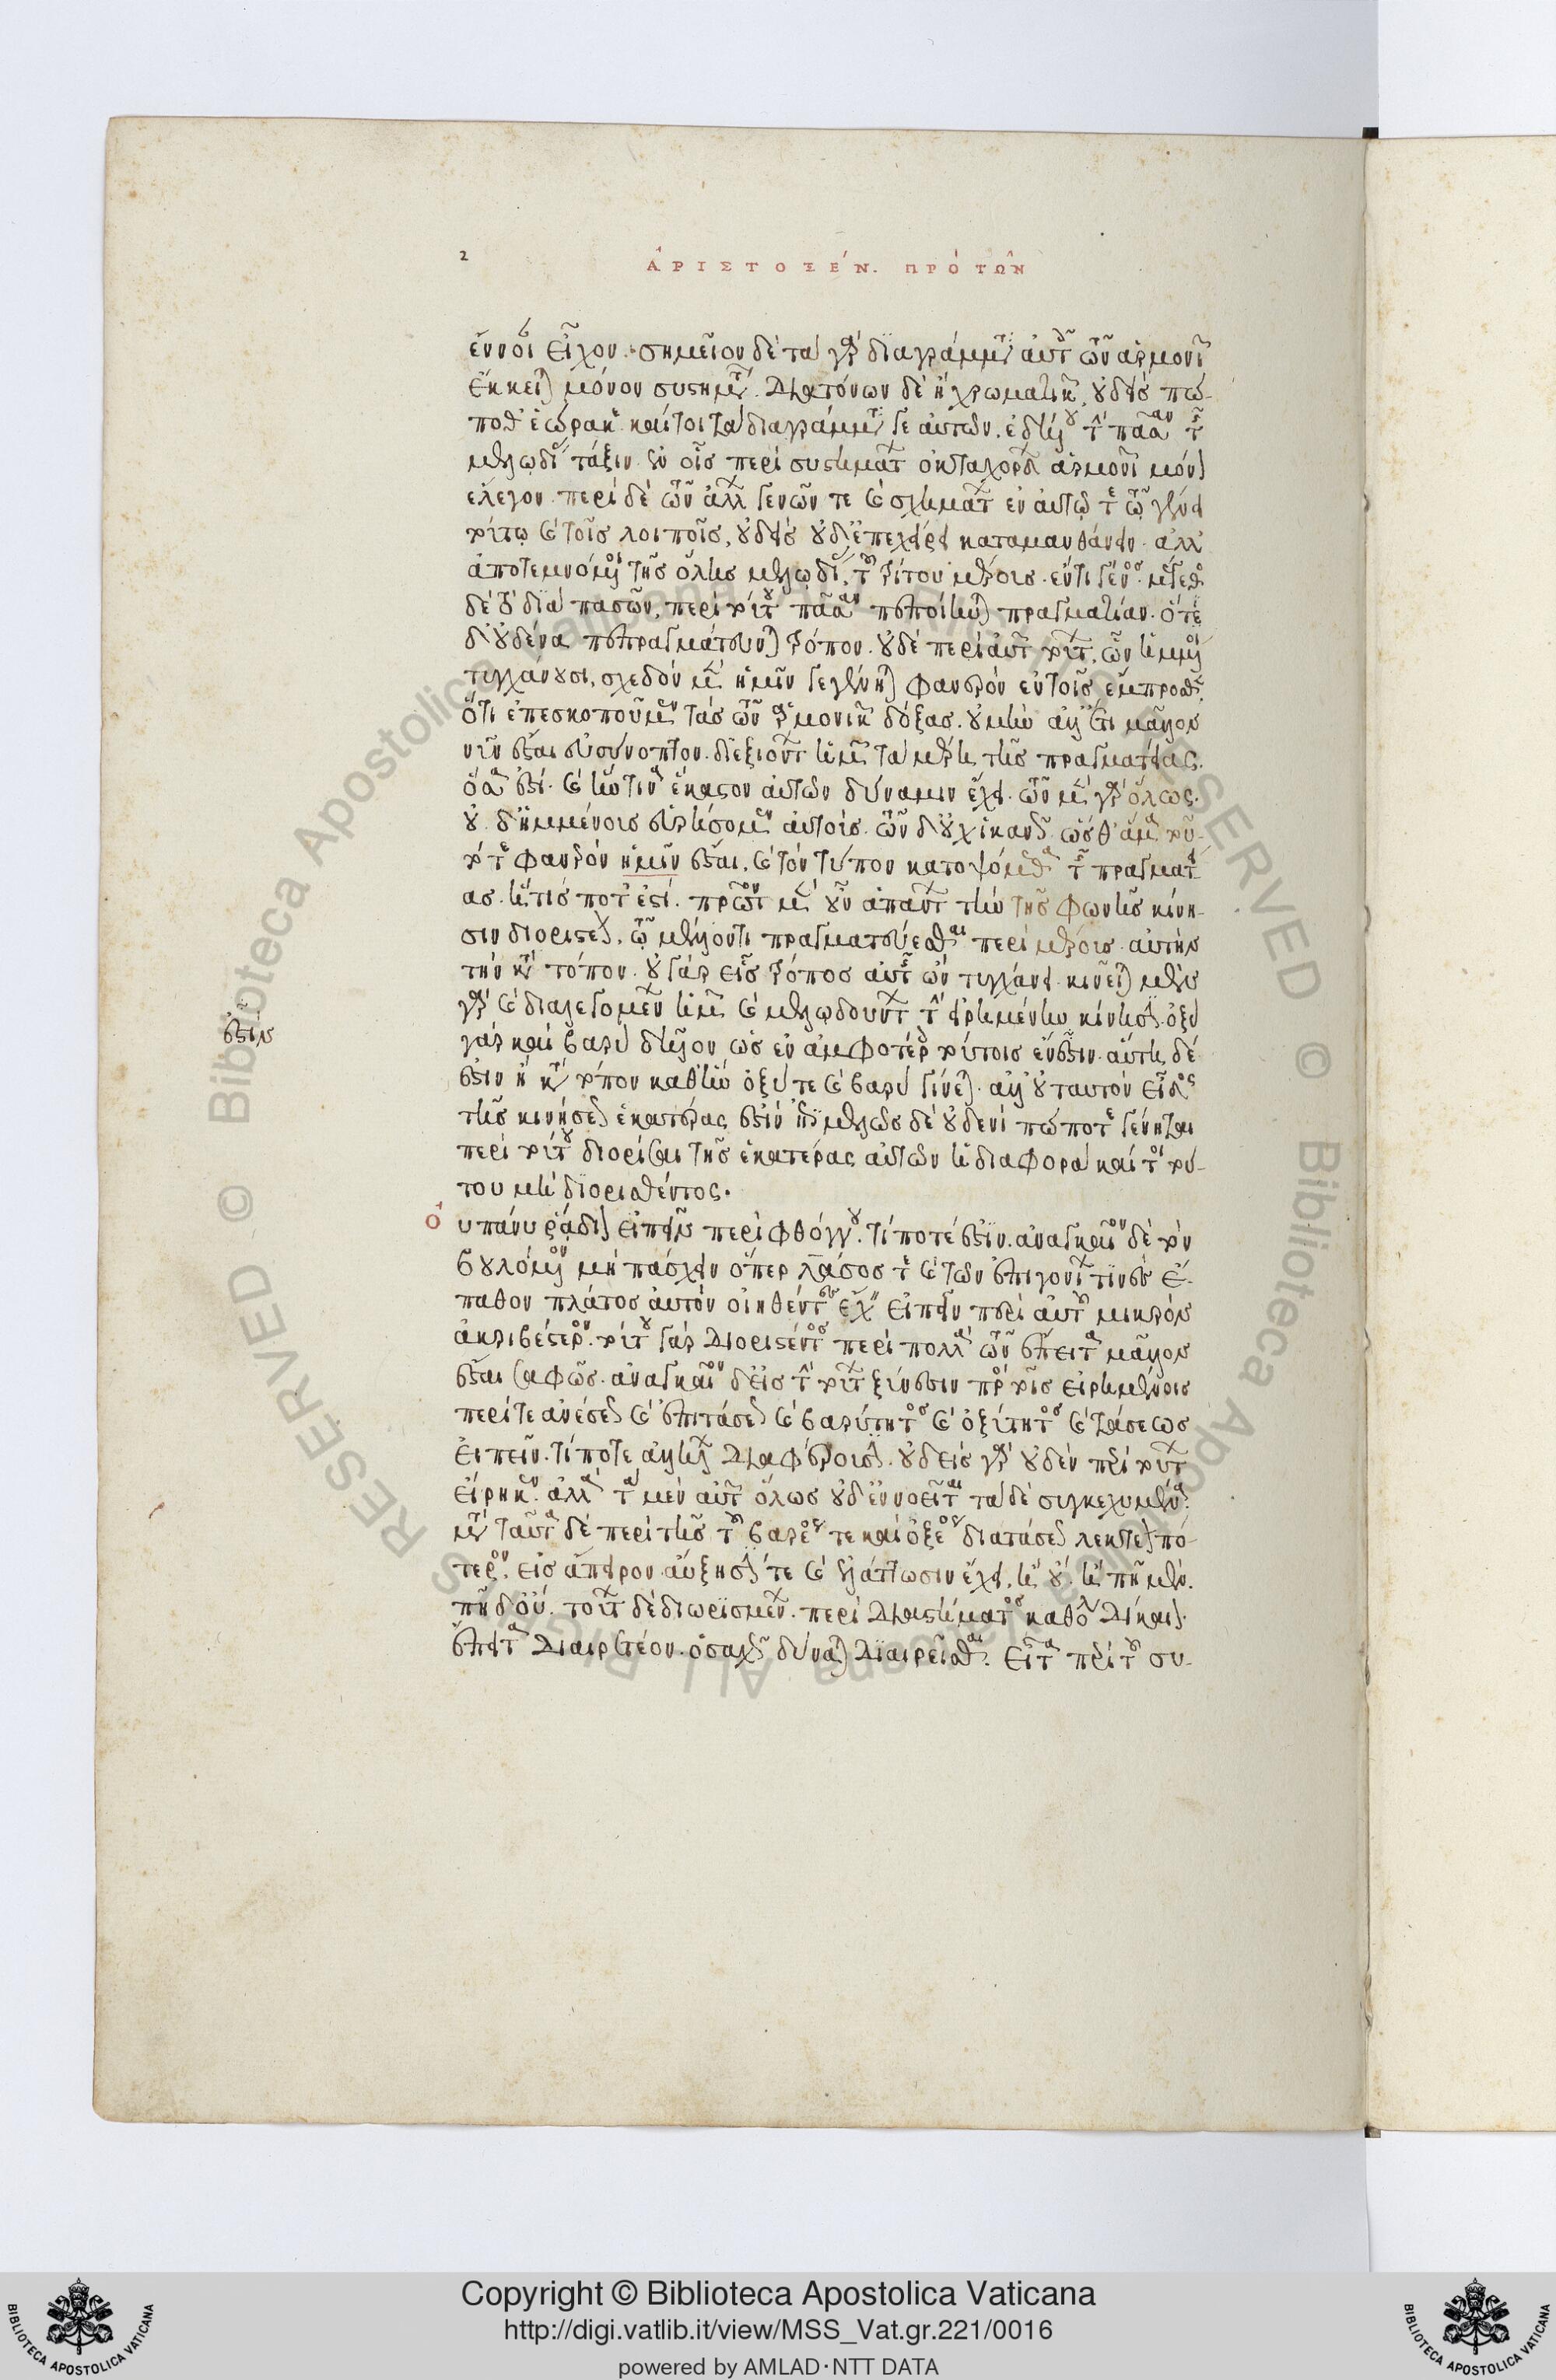 2
ἈΡΙΣΤΟΞΈΝ. ΠΡΌ ΤΩ͂Ν
ἔννοιαν εἶχον. σημεῖον δὲ τὰ γὰρ διαγράμματα αὐτῶν τῶν ἁρμονιῶν
ἔκκειται μόνον συστημάτων. διατόνων δὲ ἢ χρωματικῶν, οὐδεὶς πώ-
ποθ' ἑώρακε. καίτοι τὰ διαγράμματά γε αὐτῶν. ἐδήλου τὴν πᾶσαν τῆς
μελῳδίας τάξιν. ἐν οἷς περὶ συστημάτων ὀκταχόρδων ἁρμονιῶν μόνον
ἔλεγον. περὶ δὲ τῶν ἄλλων γενῶν τε καὶ σχημάτων ἐν αὐτῷ τε τῷ γένει
τούτῳ καὶ τοῖς λοιποῖς, οὐδεὶς οὐδ' ἐπεχείρει καταμανθάνειν. ἀλλ'
ἀποτεμνόμενοι τῆς ὅλης μελῳδίας, τοῦ τρίτου μέρους. ἕν τι γένος. μέγεθος
δὲ τὸ διὰ πασῶν, περὶ τούτου πᾶσαν πεποίηνται πραγματείαν. ὅτι
δ' οὐδένα πεπραγμάτευνται τρόπον. οὐδὲ περὶ αὐτῶν τούτων, ὧν ἡμμένοι
τυγχάνουσι, σχεδὸν μὲν ἡμῖν γεγένηται φανερὸν ἐν τοῖς ἔμπροσθεν.
ὅτι ἐπεσκοποῦμεν τὰς τῶν ἁρμονικῶν δόξας. οὐ μὴν ἀλλ' ἔτι μᾶλλον
νῦν ἔσται εὐσύνοπτον. διεξιόντων ἡμῶν τὰ μέρη τῆς πραγματείας.
ὅσα ἐστί. καὶ ἥντινα ἕκαστον αὐτῶν δύναμιν ἔχει. τῶν μὲν γὰρ ὅλως.
οὐ δ' ἡμμένους εὑρήσομεν αὐτούς. τῶν δ' οὐχ ἱκανῶς. ὥσθ' ἅμα τοῦ-
τό τε φανερὸν ἡμῖν ἔσται, καὶ τὸν τύπον κατοψόμεθα τῆς πραγματεί
ας. ἥτις ποτ' ἐστί. πρῶτον μὲν οὖν ἁπάντων τὴν τῆς φωνῆς κίνη-
σιν διοριστέον, τῷ μέλλοντι πραγματεύεσθαι περὶ μέλους. αὐτὴν
τὴν κατὰ τόπον. οὐ γὰρ εἷς τρόπος αὐτῆς ὢν τυγχάνει. κινεῖται μὲν
γὰρ καὶ διαλεγομένων ἡμῶν καὶ μελῳδούντων τὴν εἰρημένην κίνησιν. ὀξὺ
γὰρ καὶ βαρὺ δῆλον ὡς ἐν ἀμφοτέροις τούτοις ἔνεστιν. αὕτη δέ
ἐστὶν
ἐστιν ἡ κατὰ τόπον καθ' ἣν ὀξύ τε καὶ βαρὺ γίνεται. ἀλλ' οὐ ταυτὸν εἶδος
τῆς κινήσεως ἑκατέρας ἐστὶν ἐπιμελῶς δὲ οὐδενὶ πώποτε γένηται
περὶ τούτου διορίσαι τῆς ἑκατέρας αὐτῶν ἡ διαφορὰ καί τοι τού-
του μὴ διορισθέντος.
Οὐ πάνυ ῥᾴδιον εἰπεῖν περὶ φθόγγου. τί ποτέ ἐστιν. ἀναγκαῖον δὲ τὸν
βουλόμενον μὴ πάσχειν ὅπερ λᾶσός τε καὶ τῶν ἐπιγονείων τινὲς ἔ-
παθον πλάτος αὐτὸν οἰηθέντες ἔχειν εἰπεῖν περὶ αὐτοῦ μικρὸν
ἀκριβέστερον. τούτου γὰρ διορισθέντος περὶ πολλὰ τῶν ἔπειτα μᾶλλον
ἔσται σαφῶς. ἀναγκαῖον δ' εἰς τὴν τούτων ξύνεσιν πρὸς τοῖς εἰρημένοις
περί τε ἀνέσεως καὶ ἐπιτάσεως καὶ βαρύτητος καὶ ὀξύτητος καὶ τάσεως
εἰπεῖν. τί ποτε ἀλλήλων διαφέρουσιν. οὐδεὶς γὰρ οὐδὲν περὶ τούτων
εἴρηκεν. ἀλλὰ τὰ μὲν αὐτῶν ὅλως οὐδ' ἐννοεῖται τὰ δὲ συγκεχυμένα.
μετὰ ταῦτα δὲ περὶ τῆς τοῦ βαρέος τε καὶ ὀξέος διατάσεως λεκτέον πό-
τερον. εἰς ἄπειρον αὔξησίν τε καὶ ἐλάττωσιν ἔχει, ἢ οὔ. ἢ πῆ μὲν.
πῆ δ' οὔ. τούτων δὲ διωρισμένων. περὶ διαστήματος καθόλου λεκτέον.
ἔπειτα διαιρετέον. ὁσαχῶς δύναται διαιρεῖσθαι. εἶτα περὶ τοῦ συ-
Copyright © Biblioteca Apostolica Vaticana
http://digi.vatlib.it/view/MSS_Vat.gr.221/0016
powered by AMLAD·NTT DATA
BIBLIOTECA APOSTOLICA VATICANA
BIBLIOTECA APOSTOLICA VATICANA